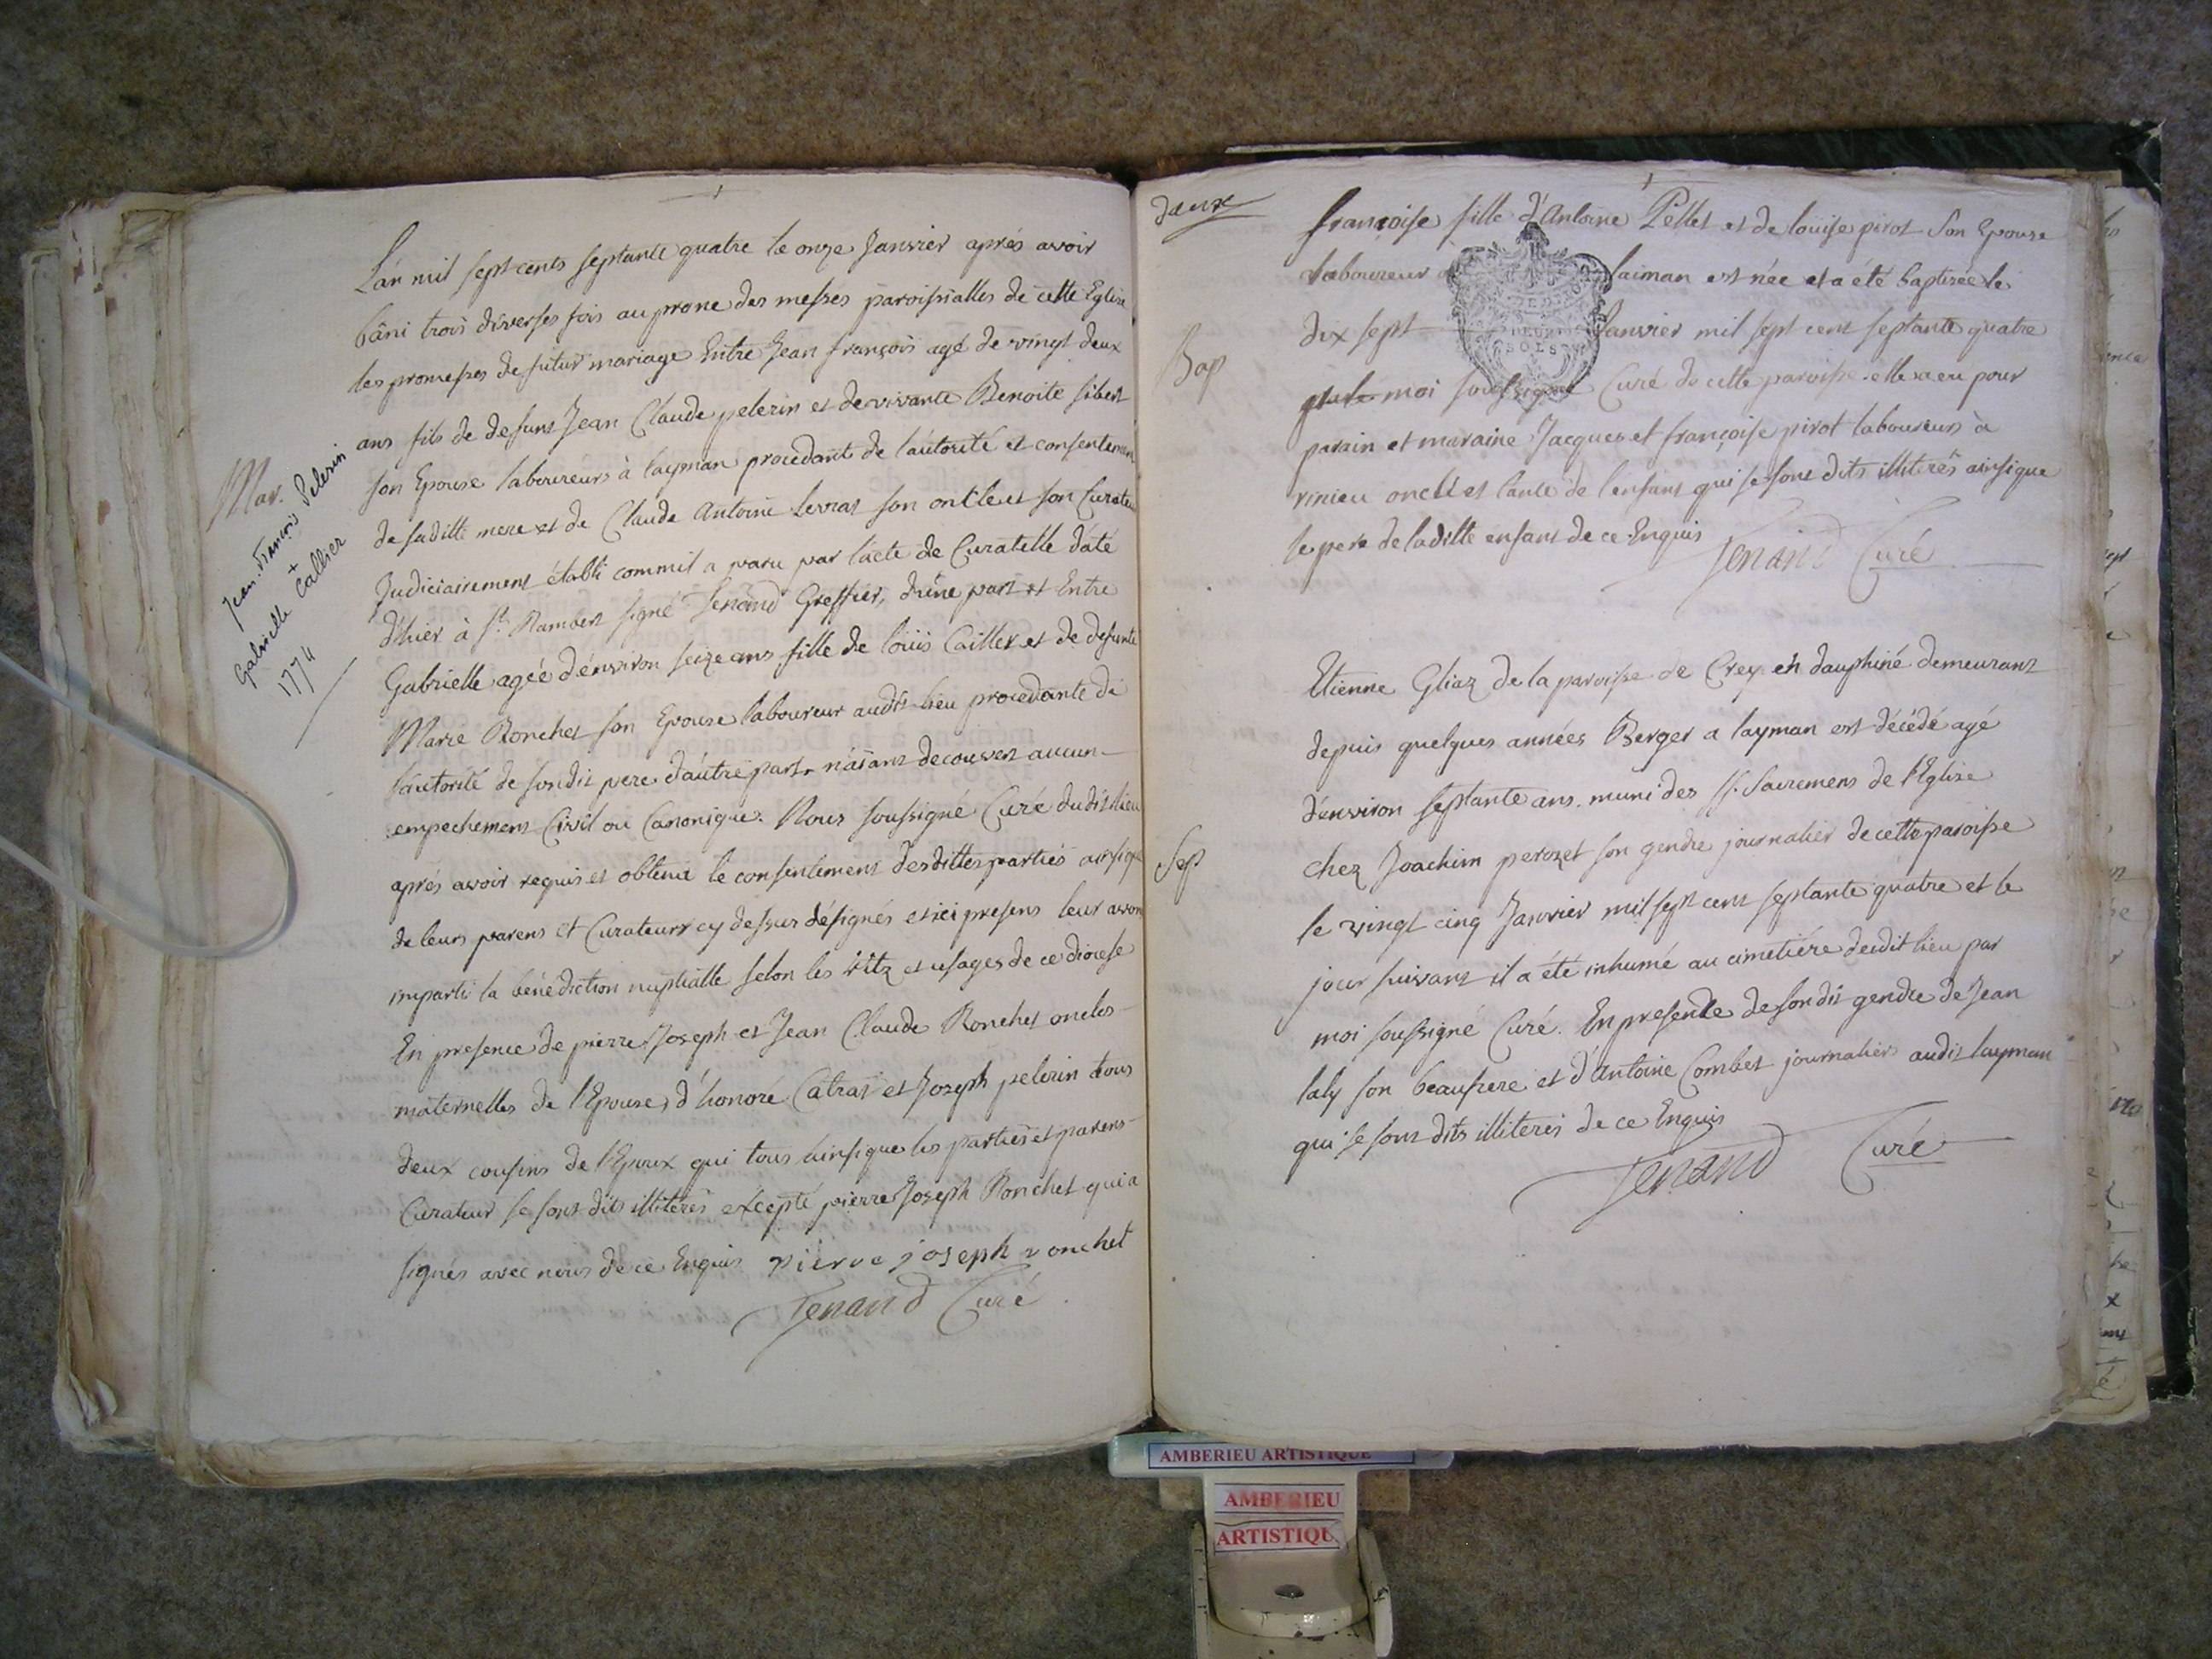 L'an mil sept cents septante quatre le onze Janvier aprés avoir
bâni trois diverses fois au prone des messes paroissialles de cette Eglise
les promesses de futur mariage Entre Jean françois agé de vingt deux
ans fils de defunt Jean Claude pelerin et de vivante Benoite sibert
son Epouse laboureurs à layman procedant de l'autorité et consentement
de saditte mere et de Claude Antoine Levrat son oncle et son Curateur
Judiciairement établi commil a paru par l'acte de Curatelle daté
d'hier à St. Rambert signé Tenand Greffier, d'une part et Entre
Gabrielle agée d'environ seize ans fille de loüis Caillet et de defunte
Marie Ronchet son Epouse laboureur audit lieu procedante de
l'autorité de sondit pere d'autre part. n'aïant decouvert aucun
empechement Civil ou Canonique. Nous soussigné Curé dudit lieu
aprés avoir requis et obtenu le consentement desdittes parties ainsi que
de leurs parens et Curateur cy dessus désignés et ici presens leur avons
imparti la bénédiction nuptialle selon les ritz et usages de ce diocese
En presence de pierre Joseph et Jean Claude Ronchet oncles
maternelles de l'Epouse, d'honoré Catras et Joseph pelerin tous
deux cousins de l'Epoux qui tous ainsi que les parties et parens
Curateur se sont dits illiterés éxcepté pierre Joseph Ronchet qui a
signés avec nous de ce Enquis pierre joseph ronchet
Tenand Curé
Mar.
Jean-François Pelerin
+
Gabrielle Callier
1774
deux
françoise fille d'Antoine Pellet et de loüise pirot son Epouse
laboureur à laiman est née et a été baptisée le
dix sept Janvier mil sept cent septante quatre
par moi soussigné Curé de cette paroisse. elle a eu pour
parain et maraine Jacques et françoise pirot laboureurs à
rinieu oncle et tante de l'enfant qui se sont dits illiterés ainsi que
le pere de laditte enfant de ce Enquis
Tenand Curé
Bap
Etienne Gliaz de la paroisse de Crey en dauphiné demeurant
depuis quelques années Berger a layman est décédé agé
d'environ septante ans. muni des SS. Sacremens de l'Eglise
chez Joachim perozet son gendre journalier de cette paroisse
le vingt cinq Janvier mil sept cent septante quatre et le
jour suivant il a été inhumé au cimetiére dudit lieu par
moi soussigné Curé. En presence de sondit gendre de Jean
laly son beaufrere et d'Antoine Combet journaliers audit layman
qui se sont dits illiterés de ce Enquis
Tenand Curé
Sep
AMBERIEU ARTISTIQUE
AMBERIEU
ARTISTIQU